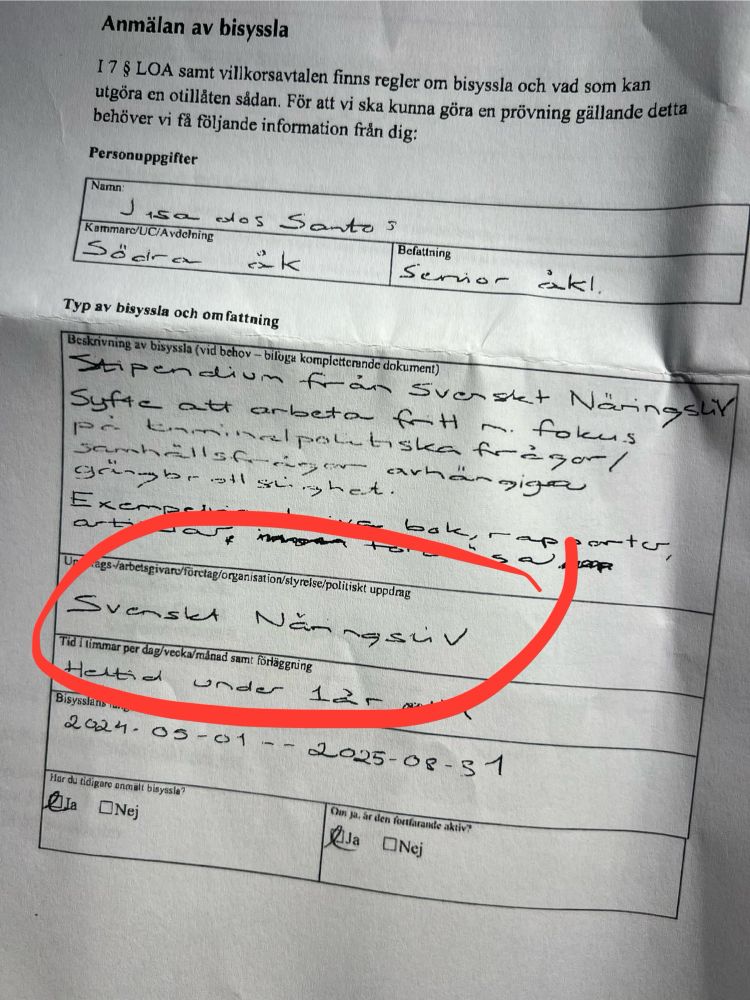 Anmälan av bisyssla
I 7 § LOA samt villkorsavtalen finns regler om bisyssla och vad som kan
utgöra en otillåten sådan. För att vi ska kunna göra en prövning gällande detta
behöver vi få följande information från dig:
Personuppgifter
Namn:
dos Santos
Kammare/UC/Avdelning
Södra åk
Befattning
Senior åkl.
Typ av bisyssla och omfattning
Beskrivning av bisyssla (vid behov – bilaga kompletterande dokument)
Stipendium från Svenskt Näringsliv
Syfte att arbeta fritt m. fokus
på kriminalpolitiska frågor/
samhällsfrågor avhängiga
gängbrottslighet.
bok, rapporter,
Uppdrags-/arbetsgivare/företag/organisation/styrelse/politiskt uppdrag
Svenskt Näringsliv
Tid i timmar per dag/vecka/månad samt förläggning
Heltid under 1 år
Bisysslans
2024-05-01 -- 2025-08-31
Har du tidigare anmält bisyssla?
Ja Nej
Om ja, är den fortfarande aktiv?
Ja Nej